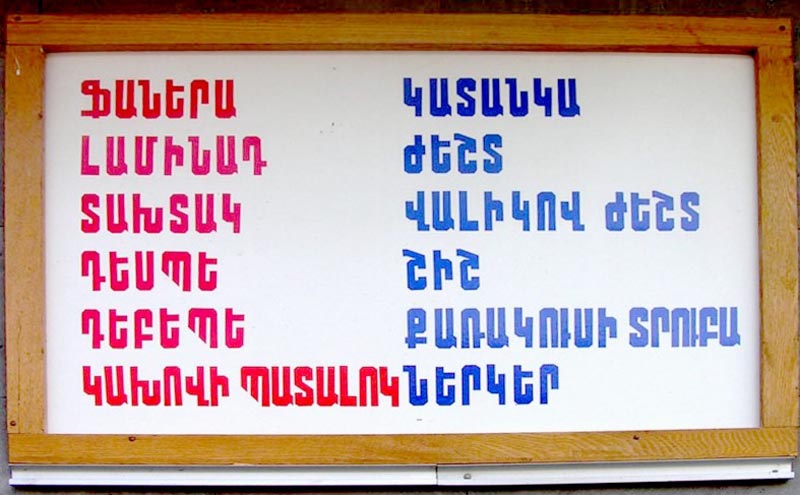 ՖԱՆԵՐԱ
ԼԱՄԻՆԱԴ
ՏԱԽՏԱԿ
ԴԵՍՊԵ
ԴԵԲԵՊԵ
ԿԱԽՈՎԻ ՊԱՏԱԼՈԿ
ԿԱՏԱՆԿԱ
ԺԵՇՏ
ՎԱԼԻԿՈՎ ԺԵՇՏ
ՇԻՇ
ՔԱՌԱԿՈՒՍԻ ՏՐՈՒԲԱ
ՆԵՐԿԵՐ